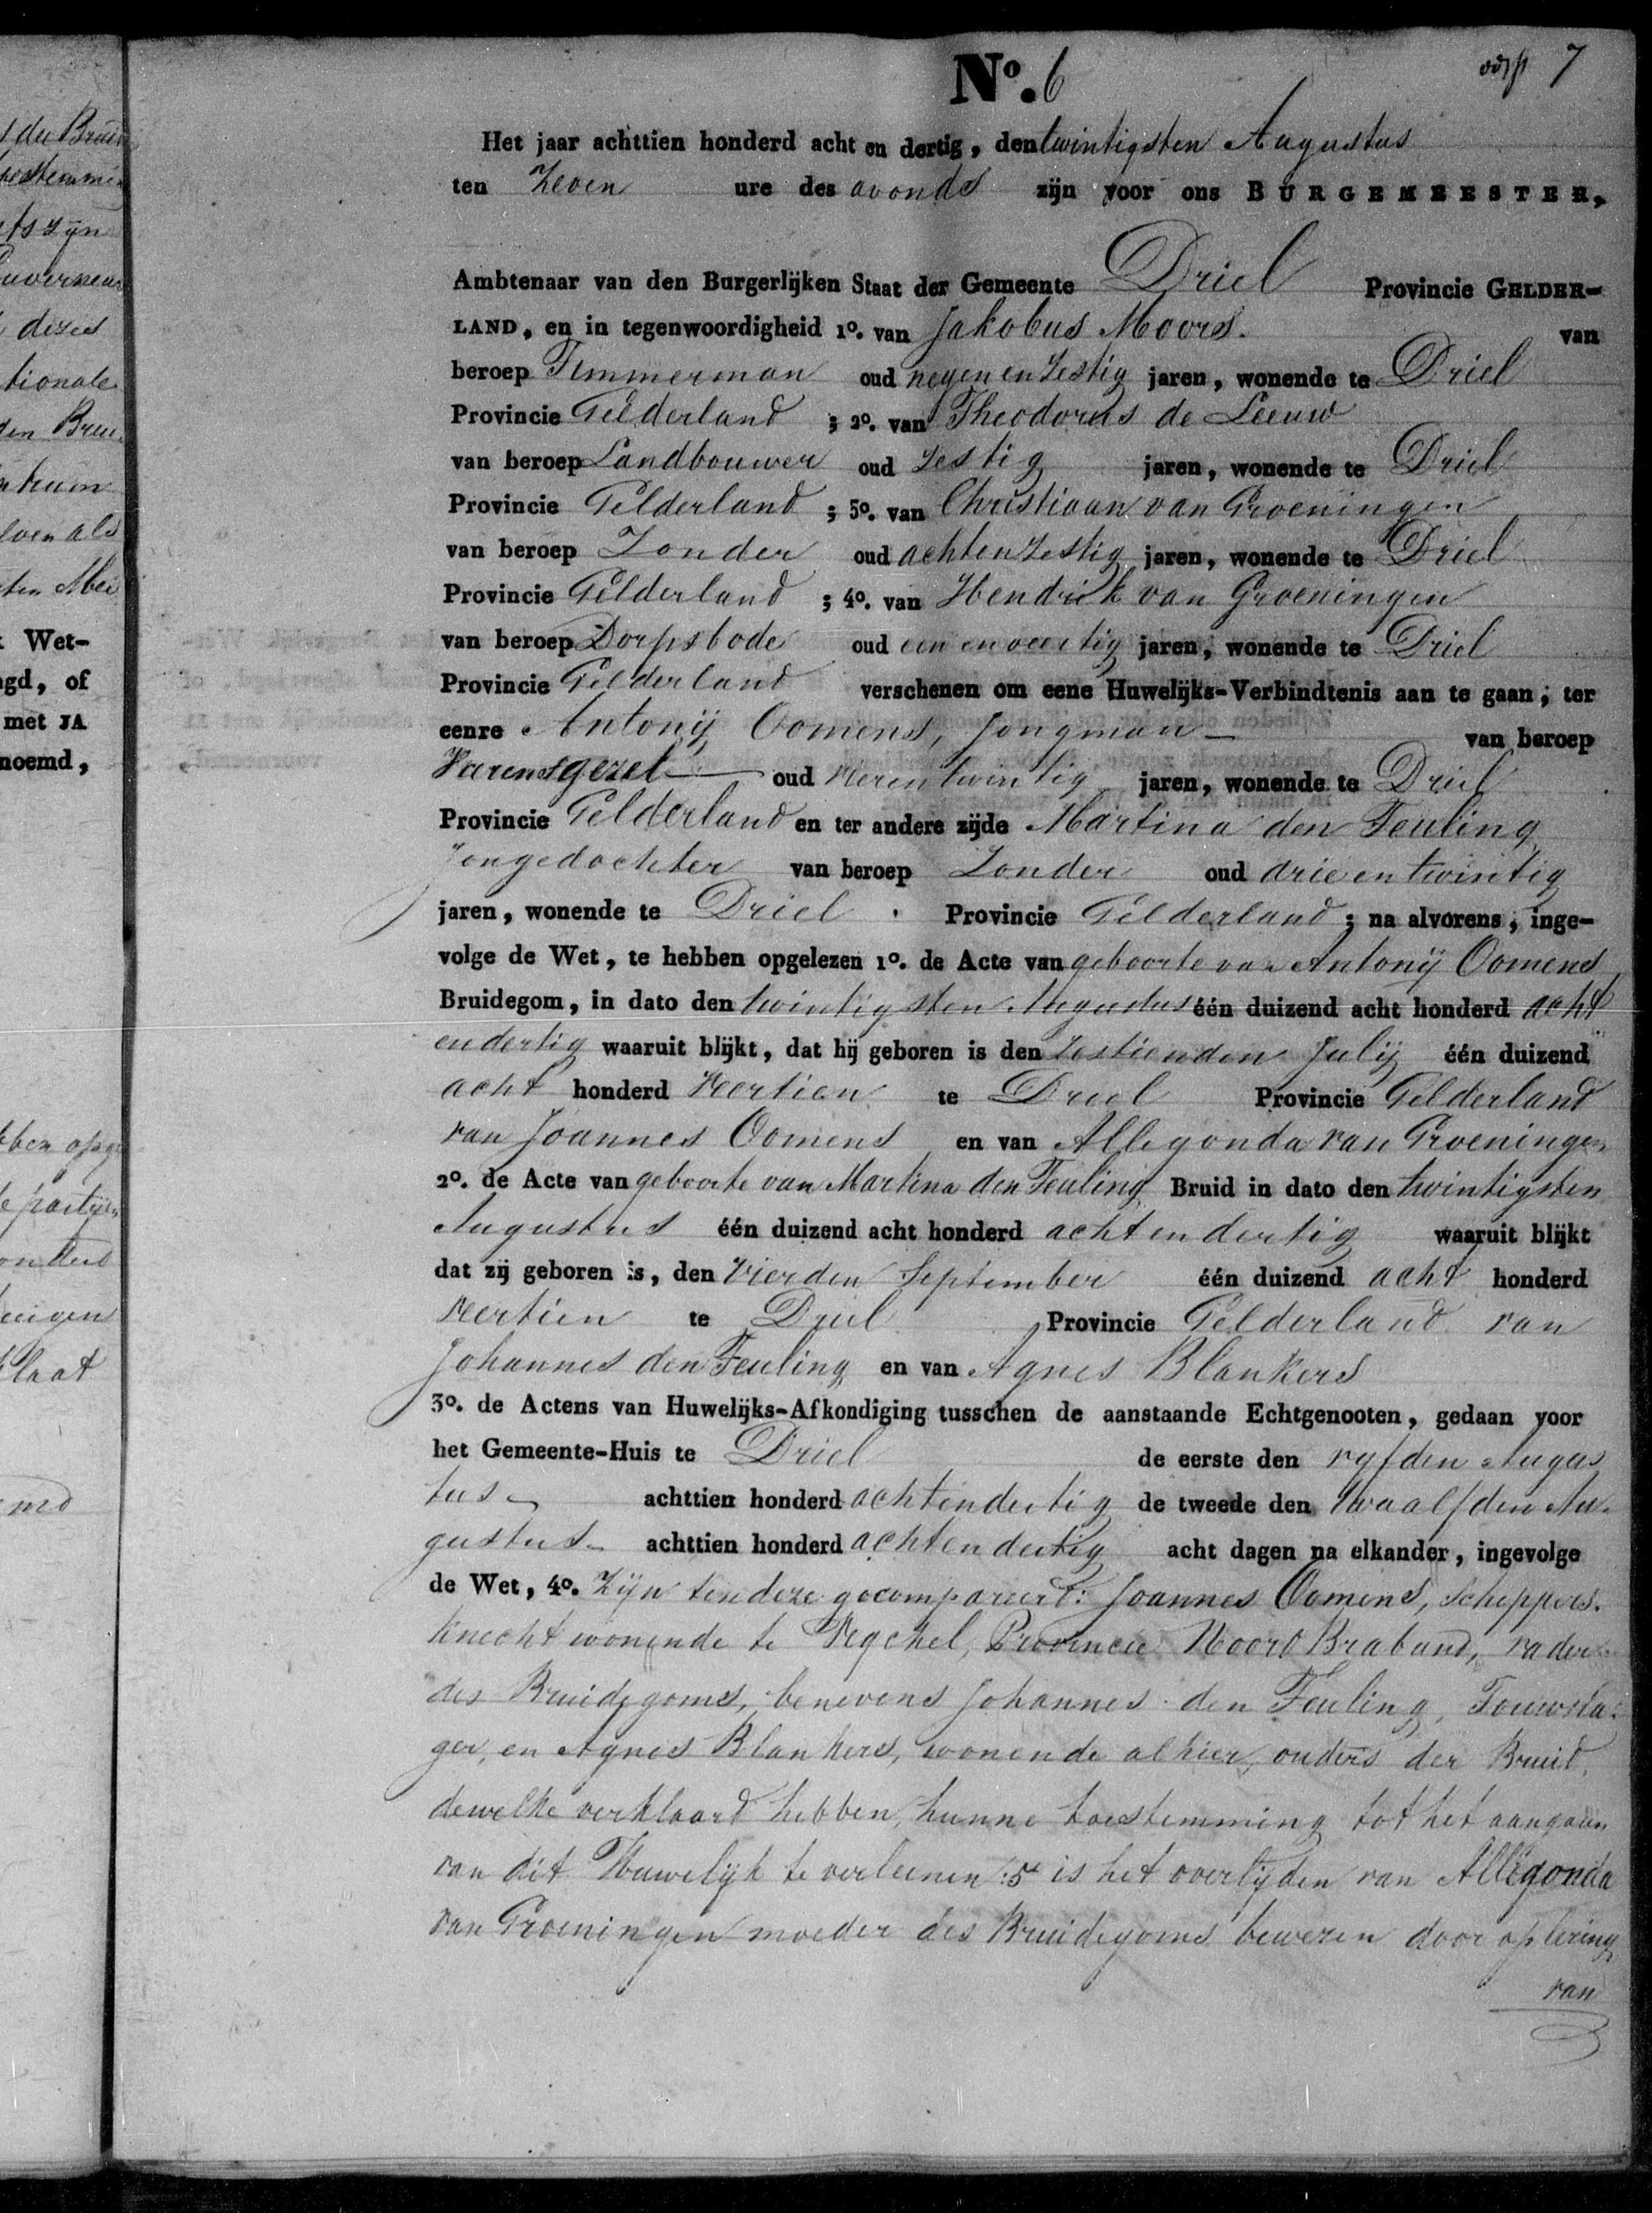 No. 6
7
Het jaar achttien honderd acht en dertig, den twintigsten Augustus
ten Zeven ure des avonds zijn voor ons BURGEMEESTER,
Ambtenaar van den Burgerlijken Staat der Gemeente Driel Provincie GELDER-
LAND, en in tegenwoordigheid 1o. van Jakobus Moors. van
beroep Timmerman oud negen en Zestig jaren, wonende te Driel
Provincie Gelderland ; 2o. van Theodorus de Leeuw
van beroep Landbouwer oud Zestig jaren, wonende te Driel
Provincie Gelderland ; 3o. van Christiaan van Groeningen
van beroep Zonder oud acht en Zestig jaren, wonende te Driel
Provincie Gelderland ; 4o. van Hendrik van Groeningen
van beroep Dorpsbode oud een en veertig jaren, wonende te Driel
Provincie Gelderland verschenen om eene Huwelijks-Verbindtenis aan te gaan; ter
eenre Antonij Oomens, Jongman van beroep
Varensgezel oud vierentwintig jaren, wonende te Driel
Provincie Gelderland en ter andere zijde Martina den Teuling
Jongedochter van beroep Zonder oud drie en twintig
jaren, wonende te Driel . Provincie Gelderland ; na alvorens, inge-
volge de Wet, te hebben opgelezen 1o. de Acte van geboorte van Antonij Oomens
Bruidegom, in dato den twintigsten Augustus één duizend acht honderd acht
en dertig waaruit blijkt, dat hij geboren is den Zestienden Julij één duizend
acht honderd Veertien te Driel Provincie Gelderland
van Joannes Oomens en van Allegonda van Groeningen
2o. de Acte van geboorte van Martina den Teuling Bruid in dato den twintigsten
Augustus één duizend acht honderd acht en dertig waaruit blijkt
dat zij geboren is, den Vierden September één duizend acht honderd
veertien te Driel Provincie Gelderland van
Johannes den Teuling en van Agnes Blankers
3o. de Actens van Huwelijks-Afkondiging tusschen de aanstaande Echtgenooten, gedaan voor
het Gemeente-Huis te Driel de eerste den vyfden Augus
tus achttien honderd achtendertig de tweede den twaalfden Au-
gustus achttien honderd achtendertig acht dagen na elkander, ingevolge
de Wet, 4o. Zijn ten deze gecompareert: Joannes Oomens, Scheppers.
knecht wonende te Vegchel, Provincie Noord Braband, vader
des Bruidegoms, benevens Johannes den Teuling, Touwsla-
ger, en Agnes Blankers, wonende alhier, ouders der Bruid,
dewelke verklaard hebben, hunne toestemming tot het aangaan
van dit Huwelijk te verleenen: 5o is het overlijden van Allegonda
van Groeningen moeder des Bruidegoms bewezen door oplezing
van